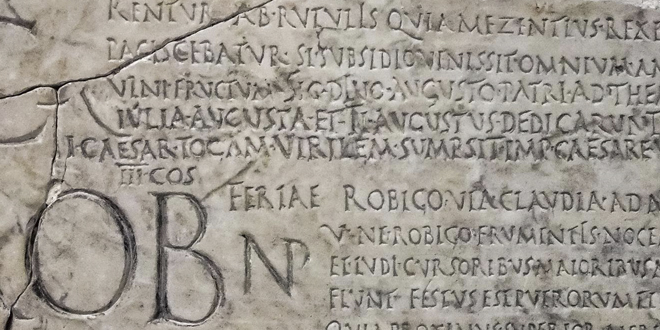 RENTVR·AB·RVTVLIS QVIA MEZENTIVS·REXE
PACISCEBATVR·SI SVBSIDIO VENISSET·OMNIVM·AN
VINI FRVCTVM SIG·DIVO·AVGVSTO·PATRI·AD THE
IVLIA·AVGVSTA·ET·TI·AVGVSTVS·DEDICARVNT
I·CAESAR·TOGAM·VIRILEM·SVMPSIT·IMP·CAESARE V
III·COS
OB NP
FERIAE ROBIGO·VIA CLAVDIA·AD A
V·NE ROBIGO·FRVMENTIS·NOCE
ET LVDI·CVRSORIBVS·MAIORIBVS
FIVNT FESTVS EST PVERORVM LE
QVIA PROXIMVS SVPERIOR